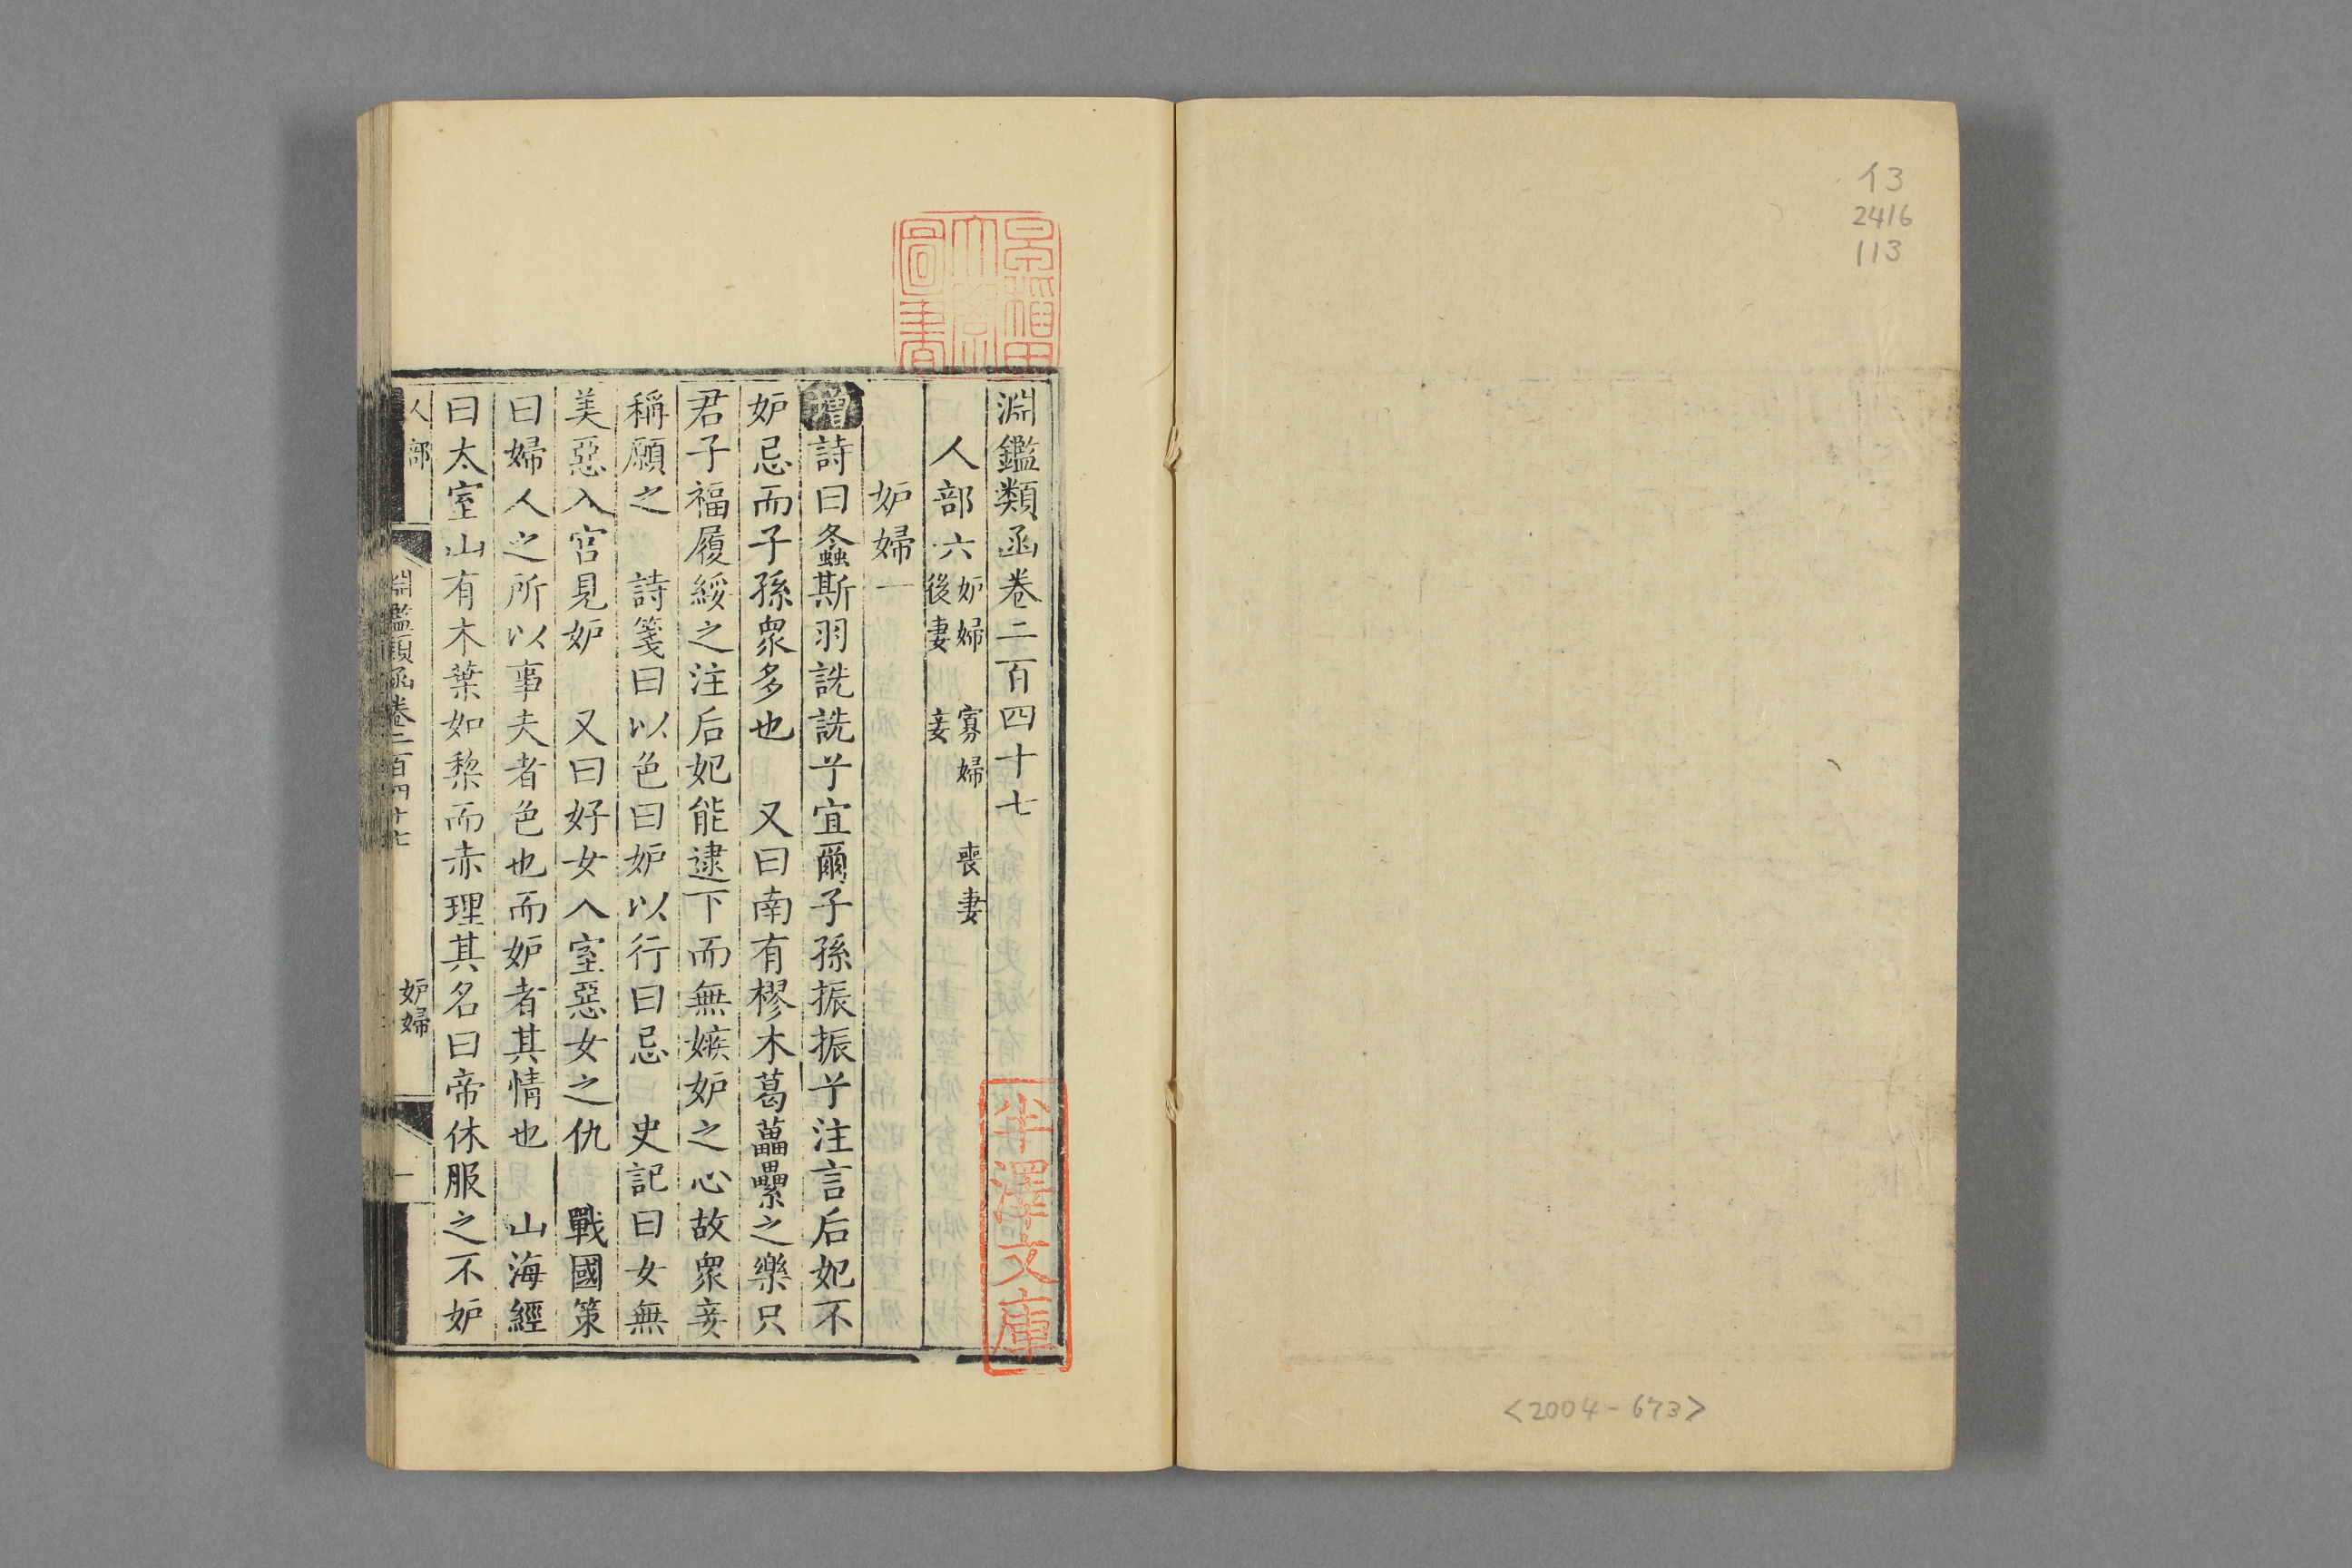 イ3
2416
113
<2004-673>
早稲田
大學
圖書
半澤文庫
淵鑑類函卷二百四十七
人部六 妒婦 寡婦 喪妻
後妻 妾
妒婦一
增詩曰螽斯羽詵詵兮宜爾子孫振振兮注言后妃不
妒忌而子孫衆多也 又曰南有樛木葛藟纍之樂只
君子福履綏之注后妃能逮下而無嫉妒之心故衆妾
稱願之 詩箋曰以色曰妒以行曰忌 史記曰女無
美惡入宮見妒 又曰好女入室惡女之仇 戰國策
曰婦人之所以事夫者色也而妒者其情也 山海經
曰太室山有木葉如棃而赤理其名曰帝休服之不妒
人部 淵鑑類函卷二百四十七 妒婦 一